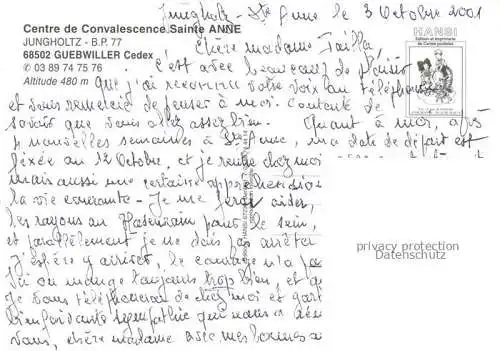 Jungholtz - Ste Anne le 3 Octobre 2001
Centre de Convalescence Sainte ANNE
JUNGHOLTZ - B.P. 77
68502 GUEBWILLER Cedex
✆ 03 89 74 75 76
Altitude 480 m
HANSI
Chère madame
c'est avec beaucoup de plaisir
que j'ai reconnu votre voix au téléphone
et vous remercie de penser à moi. Contente de
savoir que vous allez assez bien. Quant à moi, après
4 nouvelles semaines à Ste Anne, ma date de départ est
fixée au 12 Octobre, et je rentre chez moi
mais aussi une certaine appréhension
la vie courante - Je me ferai aider,
les rayons au Hasenrain pour le sein,
et parallèlement je ne dois pas arrêter
J'espère y arriver, le courage n'a pas
Ici on mange toujours trop bien, et
Je vous téléphonerai de chez moi et
bienfaisante sympathie que nous
vous, chère madame avec mes bonnes
privacy protection
Datenschutz